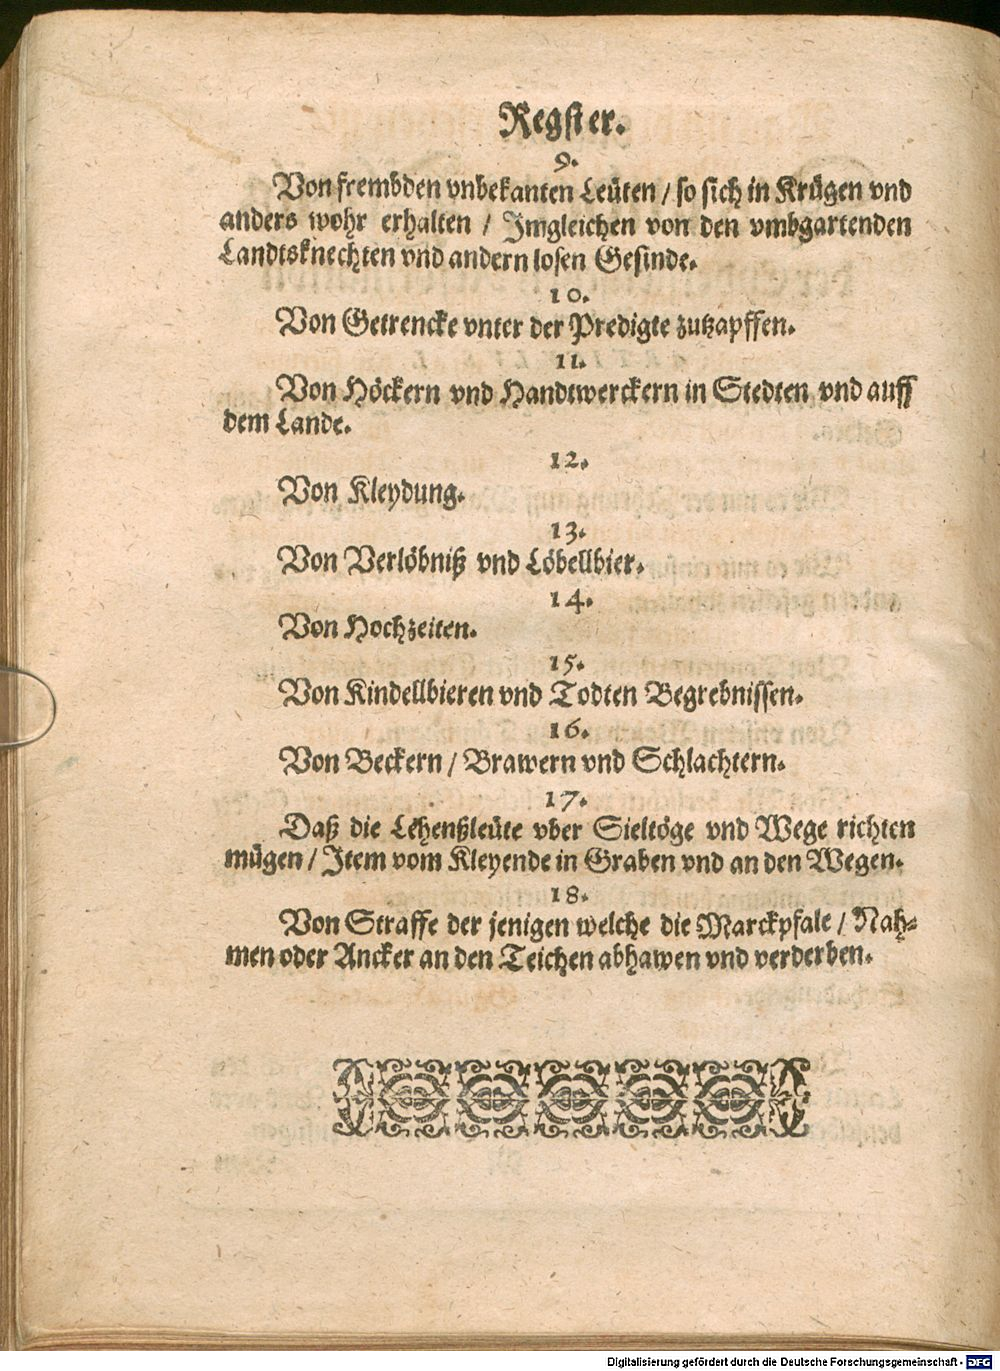 Regster.
9.
Von frembden vnbekanten Leüten / so sich in Krügen vnd
anders wohr erhalten / Imgleichen von den vmbgartenden
Landtsknechten vnd andern losen Gesinde.
10.
Von Getrencke vnter der Predigte zutzapffen.
11.
Von Höckern vnd Handtwerckern in Stedten vnd auff
dem Lande.
12.
Von Kleydung.
13.
Von Verlöbniß vnd Löbellbier.
14.
Von Hochzeiten.
15.
Von Kindellbieren vnd Todten Begrebnissen.
16.
Von Beckern / Brawern vnd Schlachtern.
17.
Daß die Lehenßleüte vber Sieltöge vnd Wege richten
mügen / Item vom Kleyende in Graben vnd an den Wegen.
18.
Von Straffe der jenigen welche die Marckpfale / Nah-
men oder Ancker an den Teichen abhawen vnd verderben.
Digitalisierung gefördert durch die Deutsche Forschungsgemeinschaft - DFG